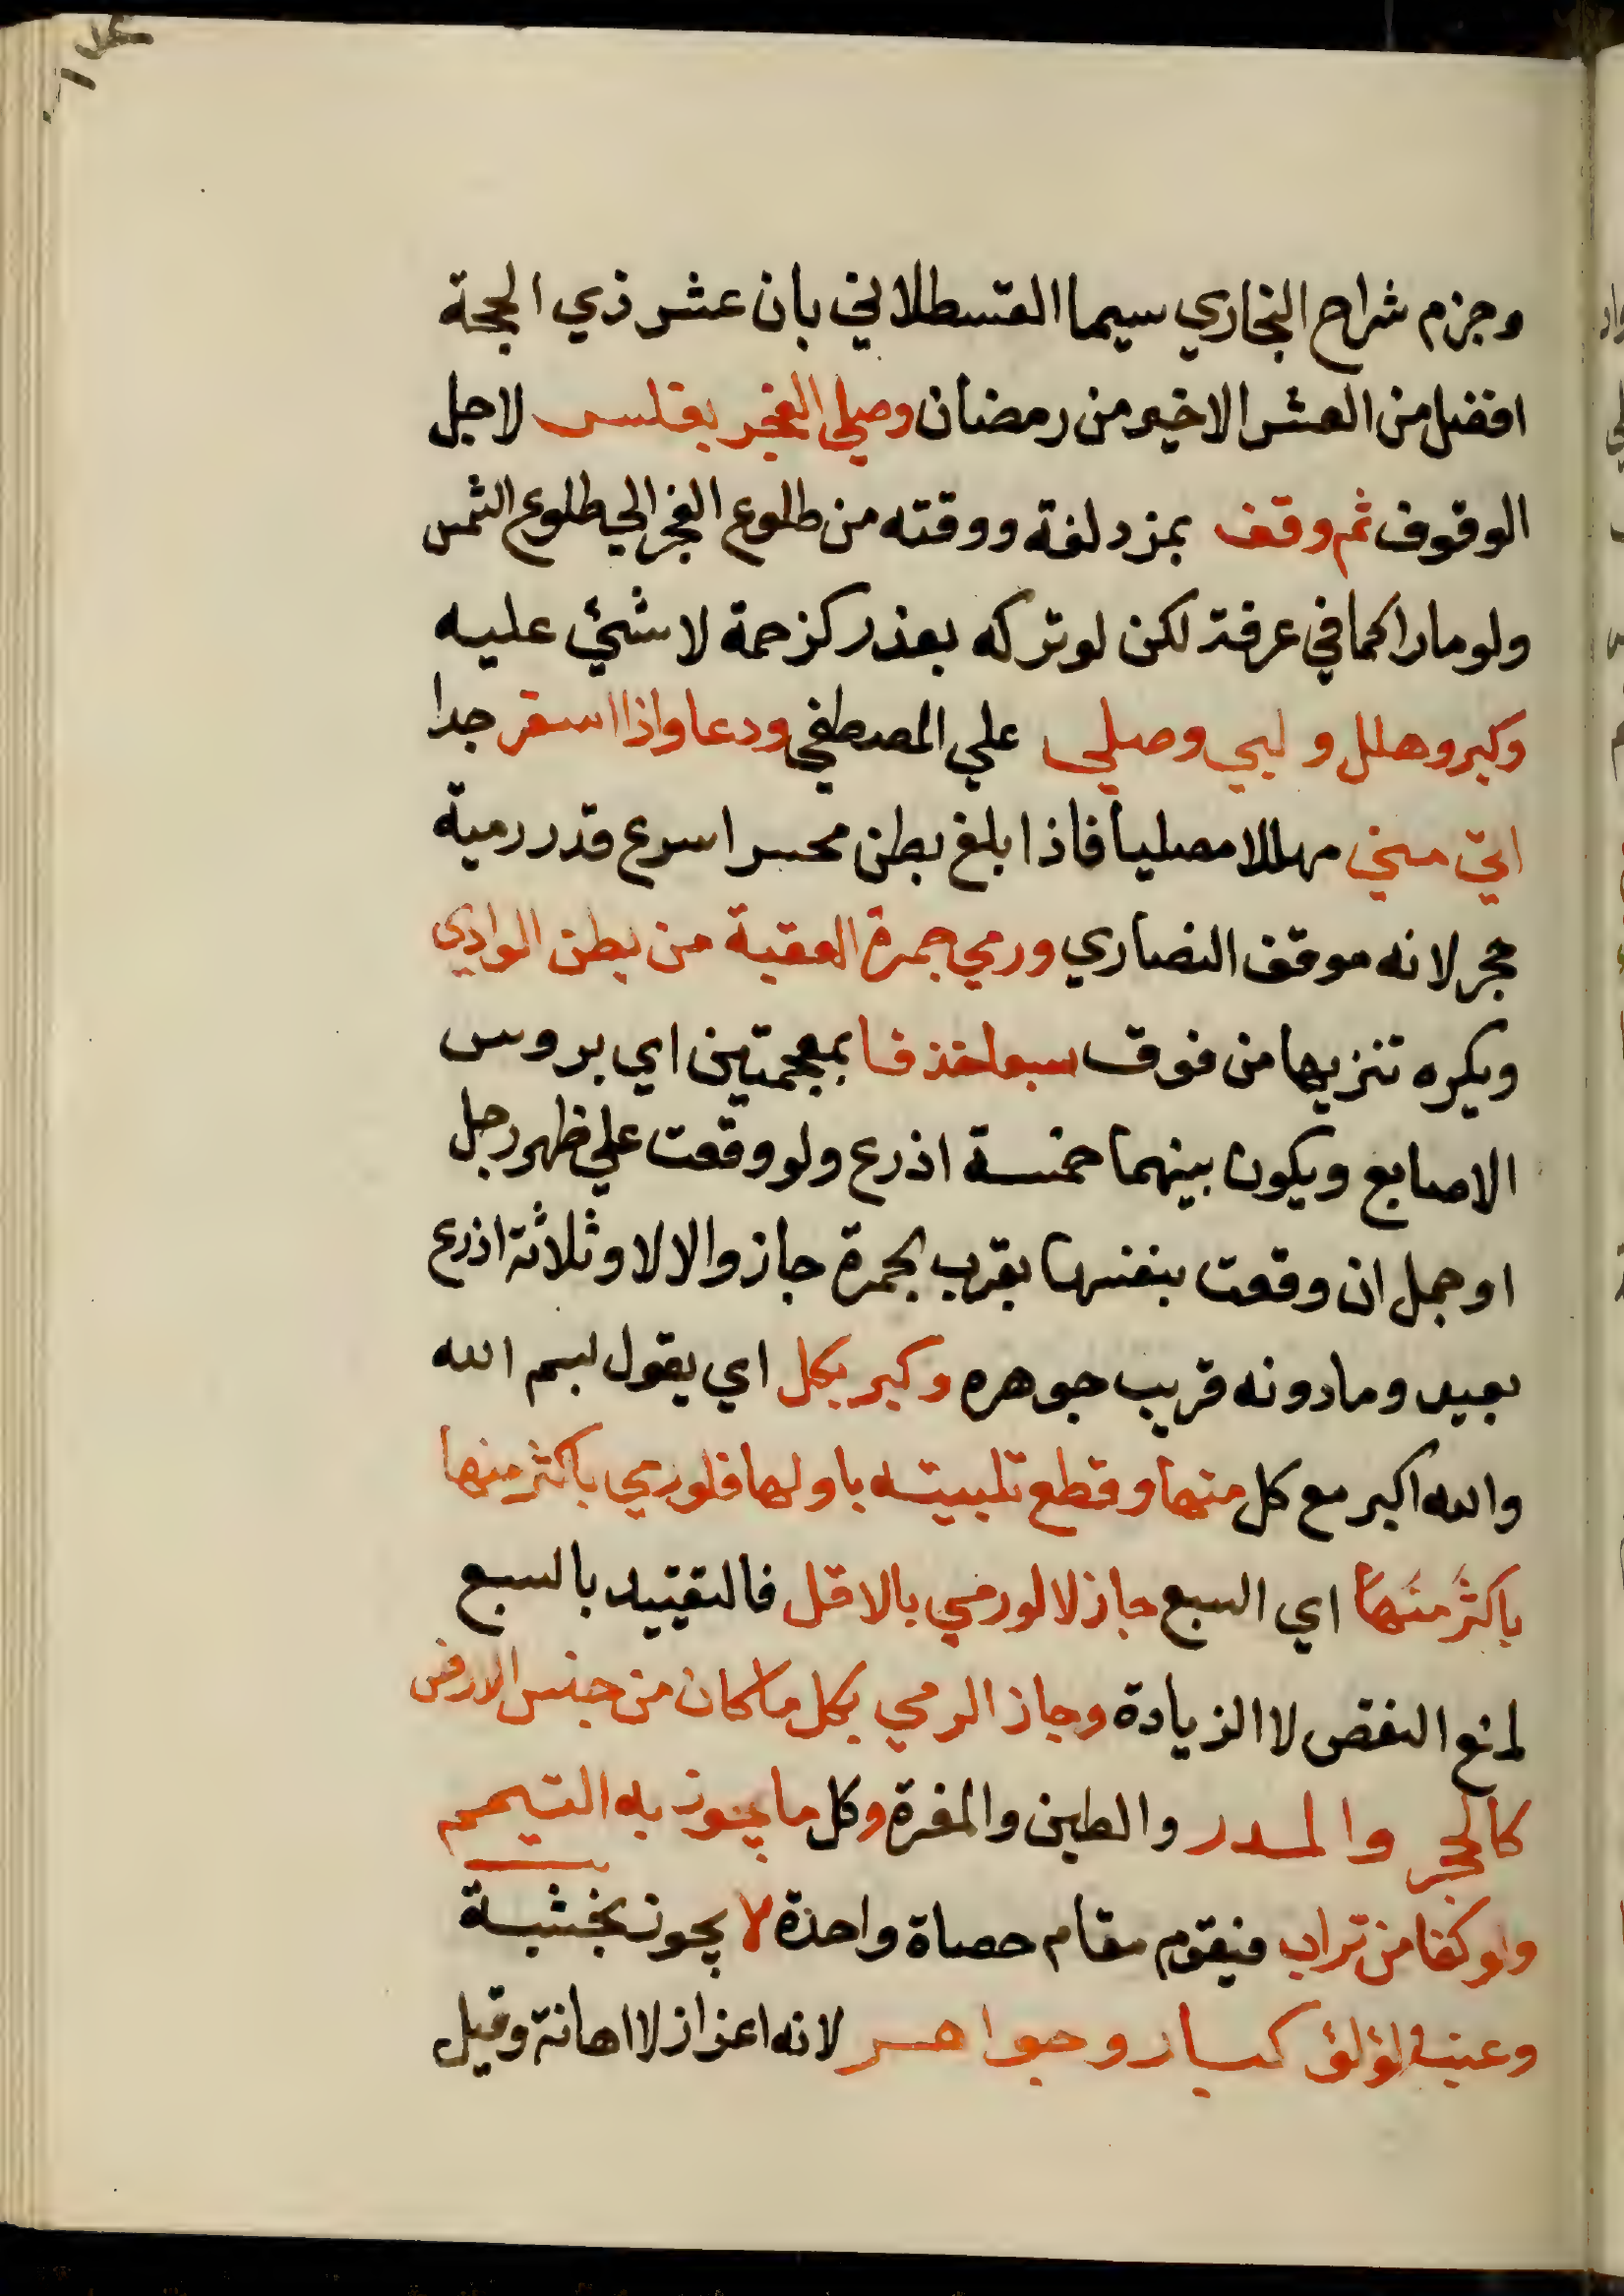 وجزم شراح البخاري سيما القسطلاني بان عشر ذي الحجة
افضل من العشر الاخير من رمضان وصلي الفجر بغلس لاجل
الوقوف ثم وقف بمزدلفة ووقته من طلوع الفجر الي طلوع الشمس
ولو مارا كما في عرفة لكن لو تركه بعذر كزحمة لا شئ عليه
وكبر وهلل ولبي وصلي علي المصطفي ودعا واذا اسفر جدا
اتي مني مهللا مصليا فاذا بلغ بطن محسر اسرع قدر رمية
حجر لانه موقف النصاري ورمي جمرة العقبة من بطن الوادي
ويكره تنزيها من فوق سبعا خذفا بمعجمتين اي بروس
الاصابع ويكون بينهما خمسة اذرع ولو وقعت علي ظهر رجل
او جمل ان وقعت بنفسها بقرب الجمرة جاز والا لا وثلاثة اذرع
بعيد وما دونه قريب جوهره وكبر بكل اي يقول بسم الله
والله اكبر مع كل منها وقطع تلبيته باولها فلو رمي باكثر منها
باكثر منها اي السبع جاز لا لو رمي بالاقل فالتقييد بالسبع
لمنع النقص لا الزيادة وجاز الرمي بكل ما كان من جنس الارض
كالحجر والمدر والطين والمغرة وكل ما يجوز به التيمم
ولو كفا من تراب فيقوم مقام حصاة واحدة لا يجوز بخشبة
وعنبر لؤلؤ كبار وجواهر لانه اعزاز لا اهانة وقيل